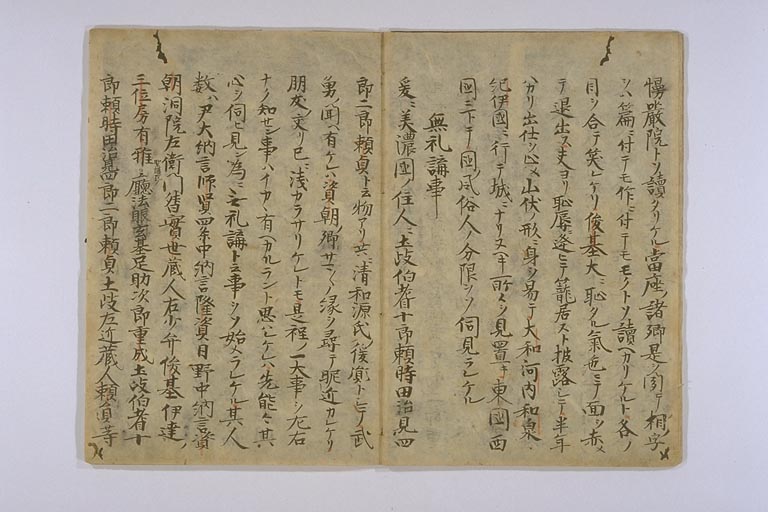 慢嚴院トソ讀タリケル當座ノ諸卿是ヲ聞テ相字
ソハ篇ニ付テモ作ニ付テモモクトソ讀ヘカリケルト各ノ
目ヲ合テ笑レケリ俊基大ニ恥タル氣色ニテ面ヲ赤メ
テ退出ス夫ヨリ恥辱ニ逢ヒテ籠居スト披露シテ半年
ハカリ出仕ヲ止メ山伏ノ形ニ身ヲ易テ大和河内和泉
紀伊國ニ行テ城ニナリヌヘキ所々ヲ見置キ東國西
國ニ下テ國ノ風俗人ノ分限ヲソ伺見ラレケル
無礼講事
爰ニ美濃國ノ住人ニ土岐伯耆十郎頼時田治見四
郎二郎頼貞ト云物アリ共ニ清和源氏ノ後胤トシテ武
勇ノ聞ヘ有ケレハ資朝ノ卿サマ〱ノ縁ヲ尋テ昵近カレケリ
朋友ノ交リ已ニ浅カラサリケレトモ是程ノ一大事ヲ左右
ナク知セン事ハイカヽ有ヘカルラント思ハレケレハ先能々其
心ヲ伺ヒ見ン為ニ無礼講ト云事ヲソ始メラレケル其人
数ハ尹大納言師賢四条中納言隆資日野中納言資
朝洞院左衛門督實世蔵人右少弁俊基伊達ノ
三位房有雅聖護院ノ廳法眼玄基足助次郎重成土岐伯耆十
郎頼時田治見四郎二郎頼貞土岐左近蔵人頼貞等